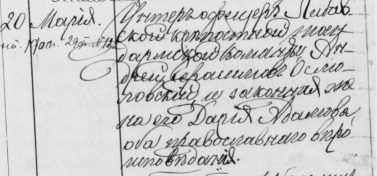 20 Мария. Унтеръ офицеръ
ской крѣпостной жан
дармской команды Ан
дрей Герасимовъ Осмо
ловскій и законная же
на его Дарія Адамова
оба православнаго вѣро
исповѣданія.